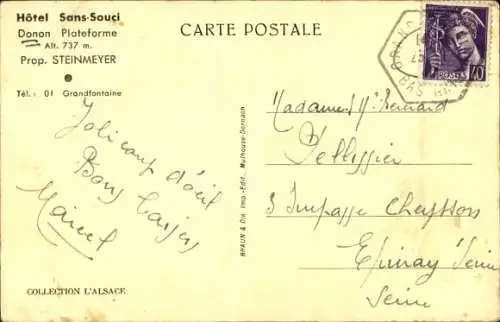 Hôtel Sans-Souci
Donon Plateforme
Alt. 737 m.
Prop. STEINMEYER
Tél.: 01 Grandfontaine
CARTE POSTALE
40
Joli coup d'œil
Bons baisers
Marcel
BRAUN & Cie Imp.-Edit., Mulhouse-Dornach
Madame & Mr Bernard
Pellissier
3 Impasse Cheysson
Epinay s/Seine
Seine
COLLECTION L'ALSACE